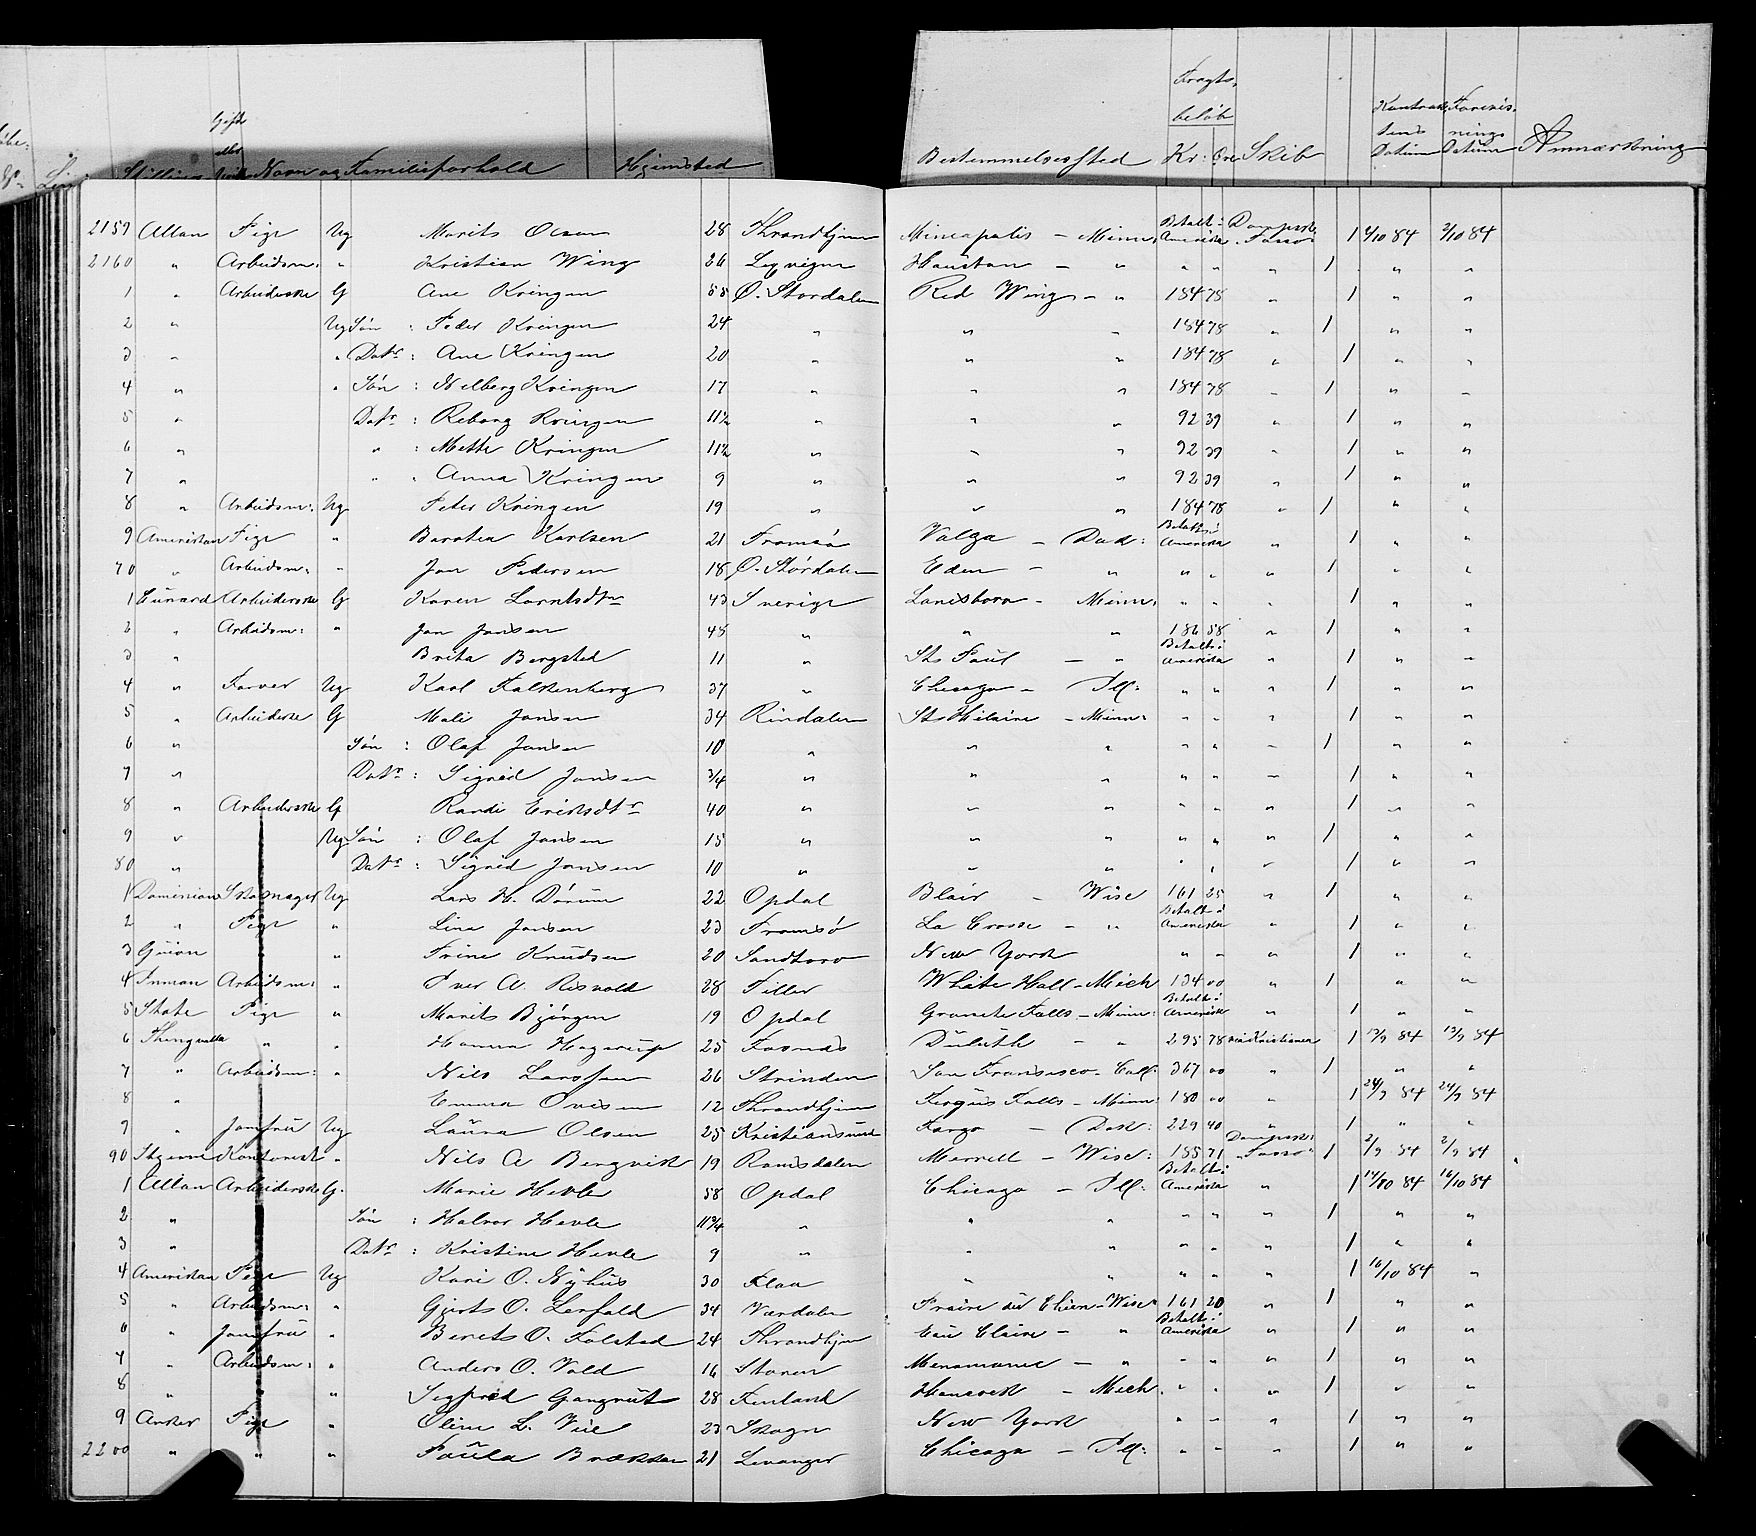 Gift
eller
Linie Stilling Navn og Familieforhold Hjemsted Bestemmelsessted Fragts- beløb Kr: Øre Skib Kontrak- tens Datum Forevis- nings Datum Anmærkning
2159 Allan Pige Ug Marits Olsen 28 Throndhjem Mineapolis - Minn: Betalt i Amerika Dampsk: "Tasso" 1 4/10 84 7/10 84
2160 " Arbeidsm: " Kristian Wing 26 Hauston - " " " " 1 " "
1 " Arbeiderske G Ane Kringen 58 Ø. Stordalen Red Wing - " 184 78 " 1 " "
2 " Ug Søn : Peder Kringen 24 " " " 184 78 " 1 " "
3 " " Datr : Ane Kringen 20 " " " 184 78 " 1 " "
4 " " Søn : Kringen 17 " " " 184 78 " 1 " "
5 " Datr : Kringen 11½ " " " 92 39 " 1 " "
6 " " : Mette Kringen 11½ " " " 92 39 " 1 " "
7 " " " Anna Kringen 9 " " " 92 39 " 1 " "
8 " Arbeidsm: Ug Peter Kringen 19 " " " 184 78 " 1 " "
9 Amerikan Pige " Barolia Karlsen 21 Tromsø Valga - Dak: Betalt i Amerika " 1 " "
70 " Arbeidsm: " Jon Pedersen 18 Ø. Størdalen Eden - " " " " 1 " "
1 Cunard Arbeiderske G Karen Larntsdtr 43 Sverige Lanisboro - Minn: " " " 1 " "
2 " Arbeidsm: " Jon Jansen 45 " " " 186 58 " 1 " "
3 " Brita Bergsted 11 " St. Paul - " Betalt i Amerika " 1 " "
4 " Farver Ug Karl Falkenberg 37 " Chicago - Ill: " " " 1 " "
5 " Arbeiderske G Mali Jansen 34 Rindalen St. Hilaire - Minn: " " " 1 " "
6 " Søn : Olaf Jansen 10 " " " " " " 1 " "
7 " Datr : Sigrid Jansen 3/4 " " " " " " 1 " "
8 " Arbeiderske G Randi Eriksdtr 40 " " " " " " 1 " "
9 " Ug Søn : Olaf Jansen 15 " " " " " " 1 " "
80 " Datr : Sigrid Jansen 10 " " " " " " 1 " "
1 Dominion Skomager Ug Lars H. Dørum 22 Opdal Blair - Wisc 161 25 " 1 " "
2 " Pige " Lina Jansen 23 Tromsø La Crosse - " Betalt i Amerika " 1 " "
3 Guion " Trine Knudsen 20 Sandtorv New York " " " 1 " "
4 Inman Arbeidsm: " Iver A. Risvold 28 Tiller White Hall - Mich 134 00 " 1 " "
5 State Pige " Marits Bjørgen 19 Opdal Granite Falls - Minn: Betalt i Amerika " 1 " "
6 Thingvalla " " Hanna Hagerup 25 Fosnæs Duluth - " 295 78 via Kristiania 1 13/9 84 13/9 84
7 " Arbeidsm: " Nils Larssen 26 Strinden San Fransisco - Call: 367 00 " 1 " "
8 " Emma Ovesen 12 Throndhjem Fergus Falls - Minn: 180 00 " 1 24/9 84 24/9 84
9 " Jomfru Ug Laura Olsen 25 Kristiansund Fargo - Dak: 229 40 " 1 " "
90 Stjerne Kontorist " Nils A Bergvik 19 Romsdalen Merrell - Wisc: 155 71 Dampsk: "Tasso" 1 2/9 84 2/9 84
1 Allan Arbeiderske G. Marie Hevle 58 Opdal Chicago - Ill: Betalt i Amerika " 1 14/10 84 16/10 84
2 " Søn : Halvor Hevle 11 3/4 " " " " " " 1 " "
3 " Datr : Kristine Hevle 9 " " " " " " 1 " "
4 Amerikan Pige Ug Kari O. Nyhus 30 Flaa " " " " " 1 16/10 84 "
5 " Arbeidsm: " Gjerts O. Lerfald 34 Værdalen Praire du Chien - Wisc: 161 20 " 1 " "
6 " Jomfru " Berets O. Folstad 24 Throndhjem Eau Claire - " Betalt i Amerika " 1 " "
7 " Arbeidsm: " Anders O. Vold 16 Støren Menamonie - " " " " 1 " "
8 " " Sigfred 28 Finland Hancock - Mich. " " " 1 " "
9 Anker Pige " Oline L. 23 Skogn New York " " " 1 " "
2200 " " " Paula Brækken 21 Levanger Chicago - Ill: " " " 1 " "